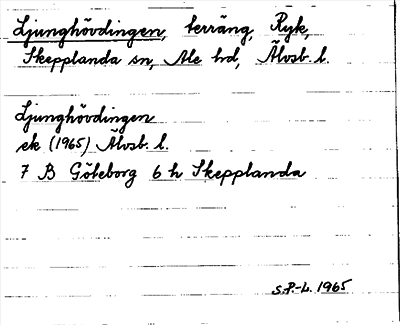 Ljunghövdingen, terräng, Ryk,
Skepplanda sn, Ale hd, Älvsb. l.
Ljunghövdingen
ek (1965) Älvsb. l.
7 B Göteborg 6 h Skepplanda
S.P-L. 1965